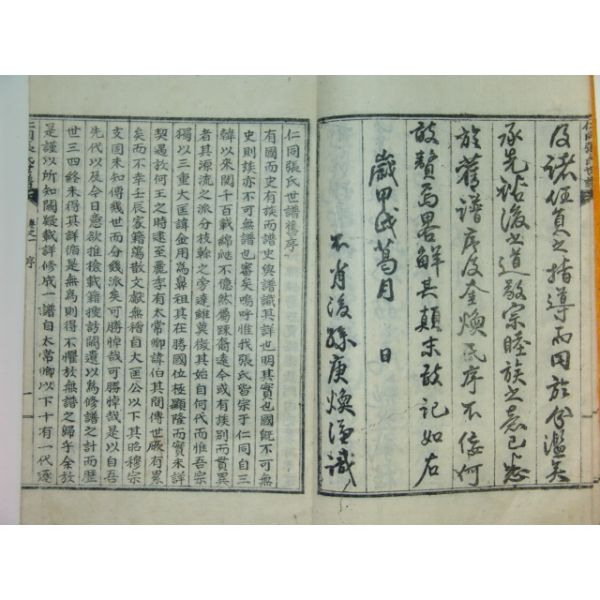 仁同張氏世譜
及諸任員之指導而同於分滥矣
承先詒後之道敦宗睦族之意已悉
於舊譜序及奎煥氏序不佞何
敢贅焉畧解其顛末敢記如右
歲甲戌菖月 日
不肖後孫庚煥謹識
仁同張氏世譜舊序
有國而史有族而譜史與譜識其詳也明其實也國旣不可無
史則族亦不可無譜也審矣嗚呼惟我張氏皆宗于仁同自三
韓以來閱千百載綿綿不億然爲踈裔遠今或有族別而貫異
者其源流之派分枝幹之旁達雖莫徵其始自何代而惟吾宗
獨以三重大匡諱金用爲鼻祖其在勝國位極顯隆而實未詳
契遇敍何王之朝歷至孝有太常卿諱伯其間傳世厥有累
矣而不幸壬辰家籍蕩散文獻無稽自大匡公以下其昭穆宗
支固未知傳幾世而分幾派矣可勝悼哉可勝悼哉是以自吾
先代以及今日悉欲推檢載籍搜訪闕遺以爲修譜之計而歷
世三四終未得其詳循是無爲則得不懼放無譜之歸乎余放
是謹以所知闕疑載詳修成一譜自太常卿以下十有一代逐
卷之一 序 一